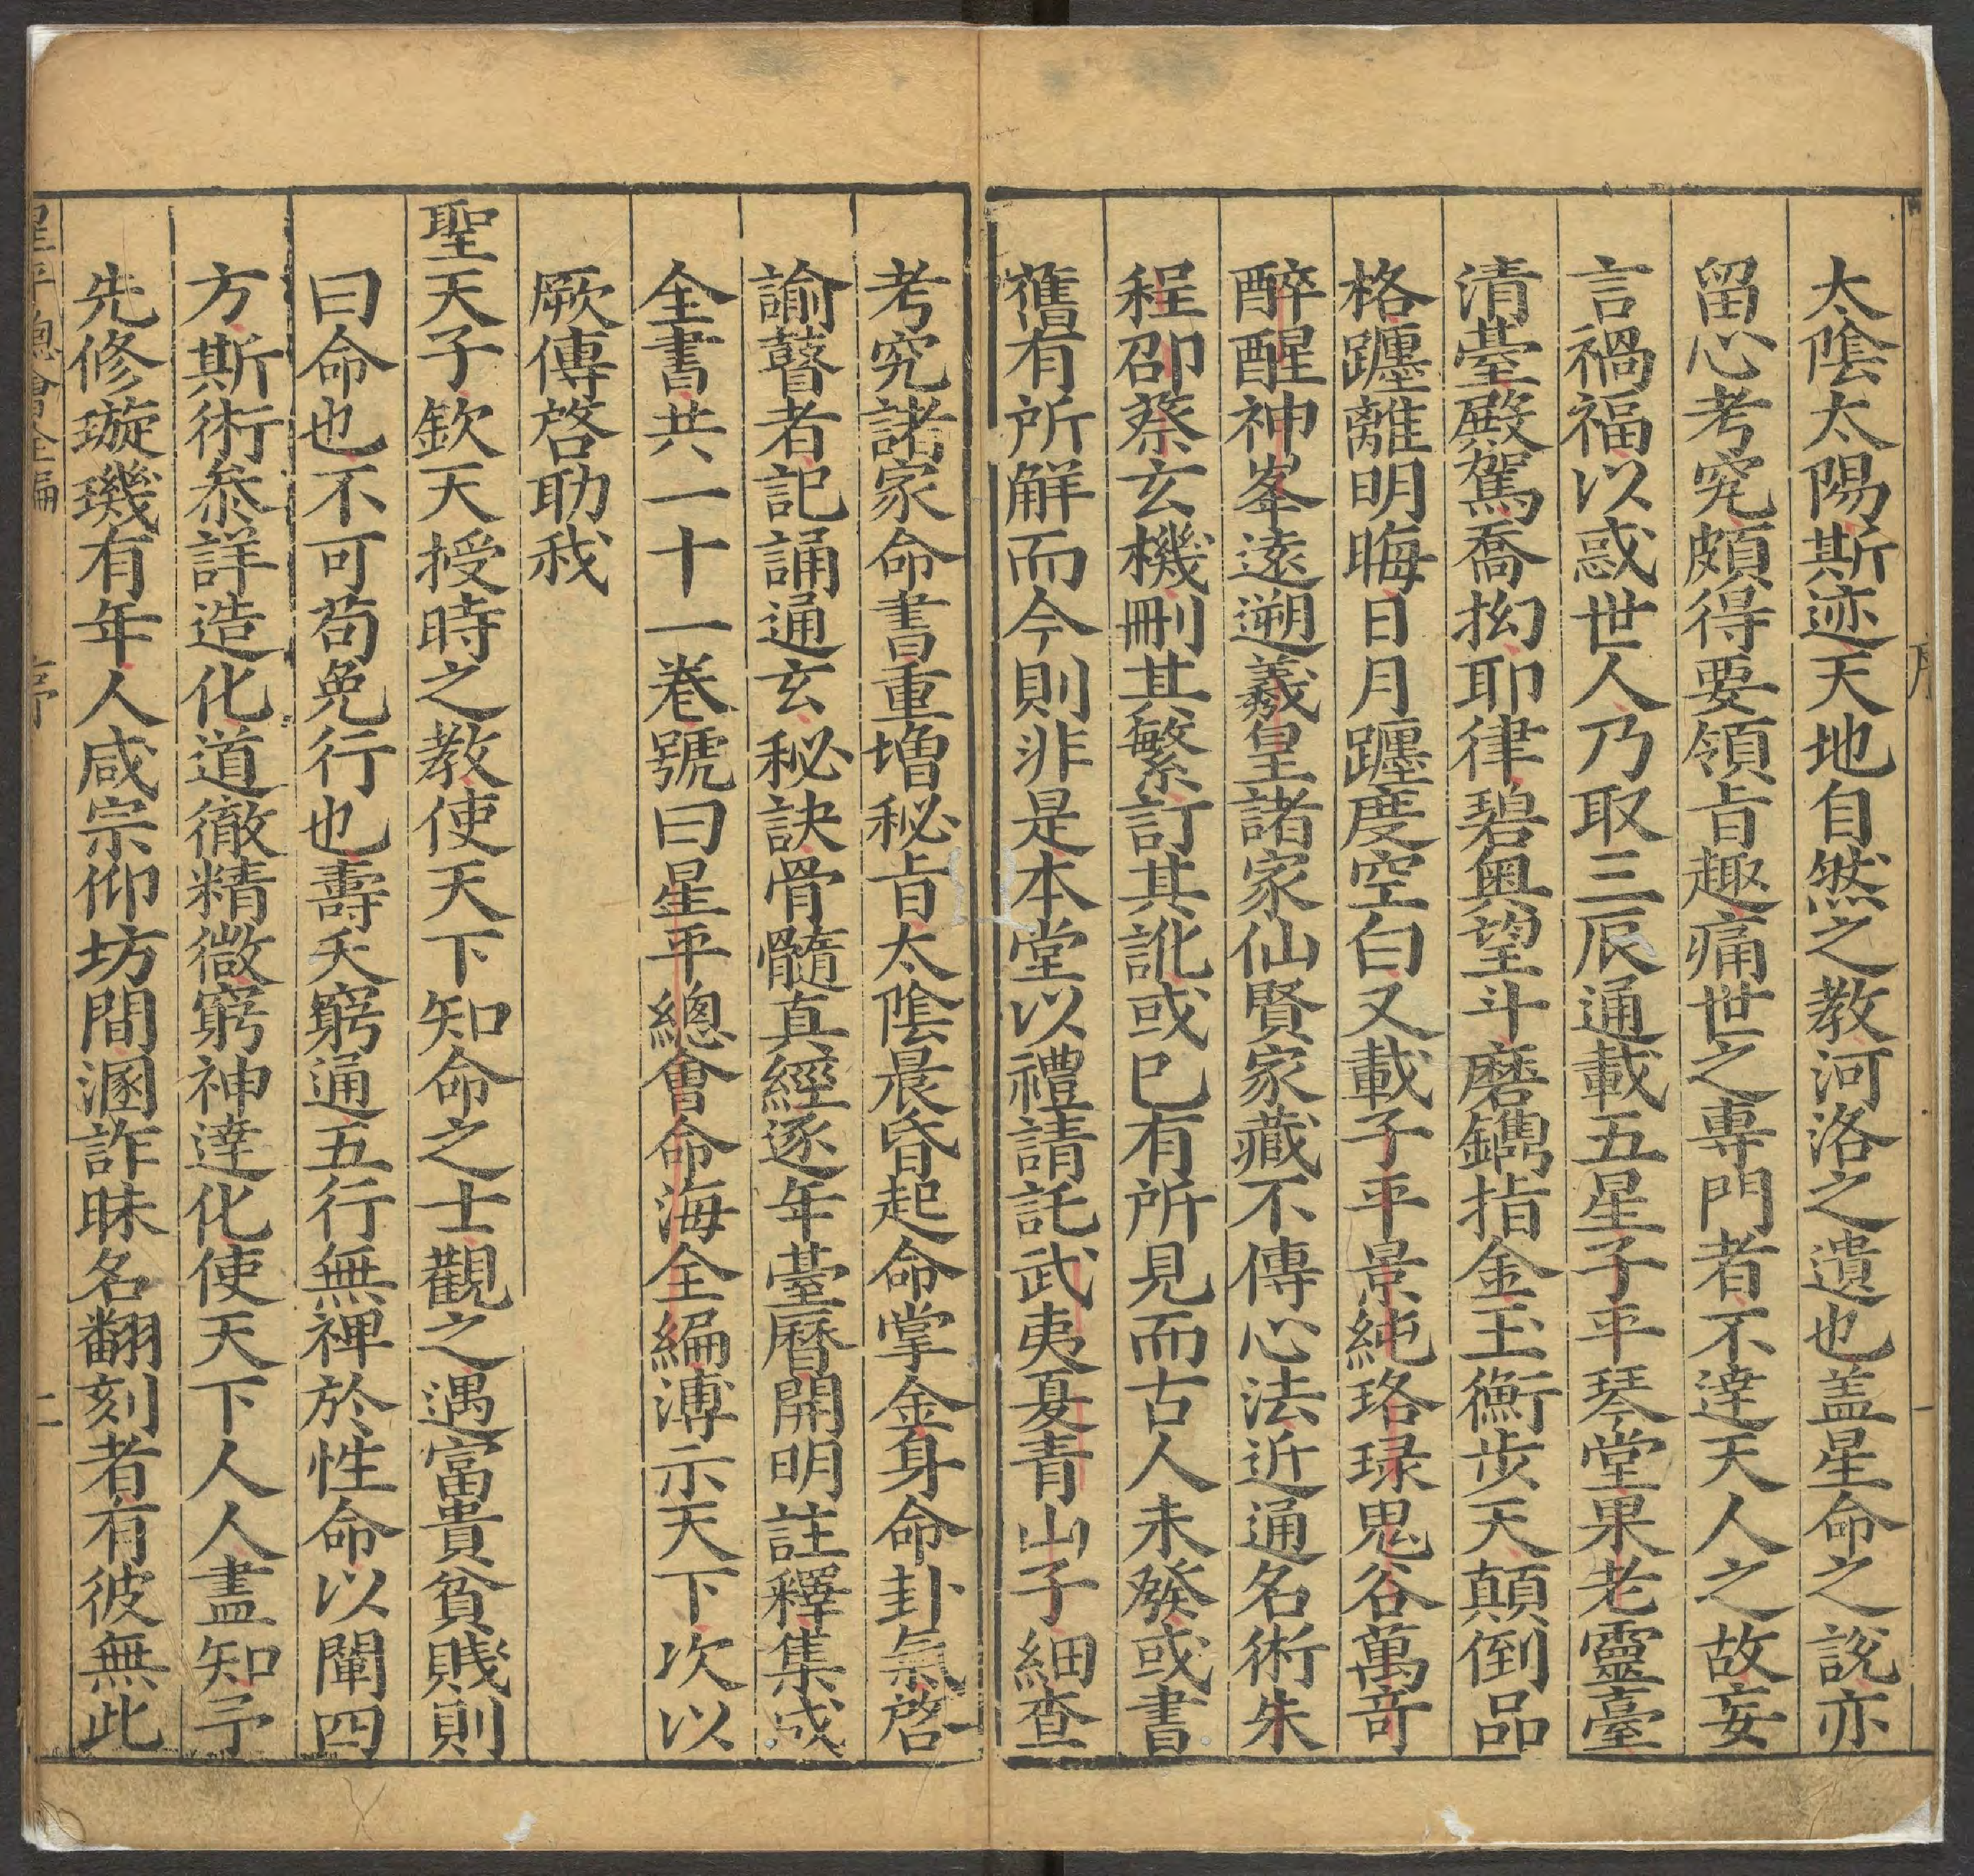 太陰太陽斯迹天地自然之教河洛之遺也盖星命之說亦
留心考究頗得要領㫖趣痛世之專門者不達天人之故妄
言禍福以惑世人乃取三辰通載五星子平琴堂果老靈臺
清臺殿駕喬拗耶律碧奥望斗磨鐫指金玉衡步天顛倒品
格躔離明晦日月躔度空白又載子平景純珞琭鬼谷萬竒
醉醒神峯遠遡羲皇諸家仙賢家藏不傳心法近通名術朱
程邵蔡玄機刪其繁訂其訛或已有所見而古人未發或書
舊有所解而今則非是本堂以禮請託武夷夏青山子細查
考究諸家命書重增秘㫖太陰晨昏起命掌金身命卦氣啓
諭瞽者記誦通玄秘訣骨髓真經逐年臺曆開明註釋集成
全書共一十一卷號曰星平總會命海全編溥示天下次以
厥傳啓助我
聖天子欽天授時之教使天下知命之士觀之遇富貴貧賤則
曰命也不可苟免行也壽夭窮通五行無裨於性命以闡四
方斯術叅詳造化道徹精微窮神達化使天下人人盡知予
先修璇璣有年人咸宗仰坊間溷詐昧名翻刻者有彼無此
星平總會全編 序 二